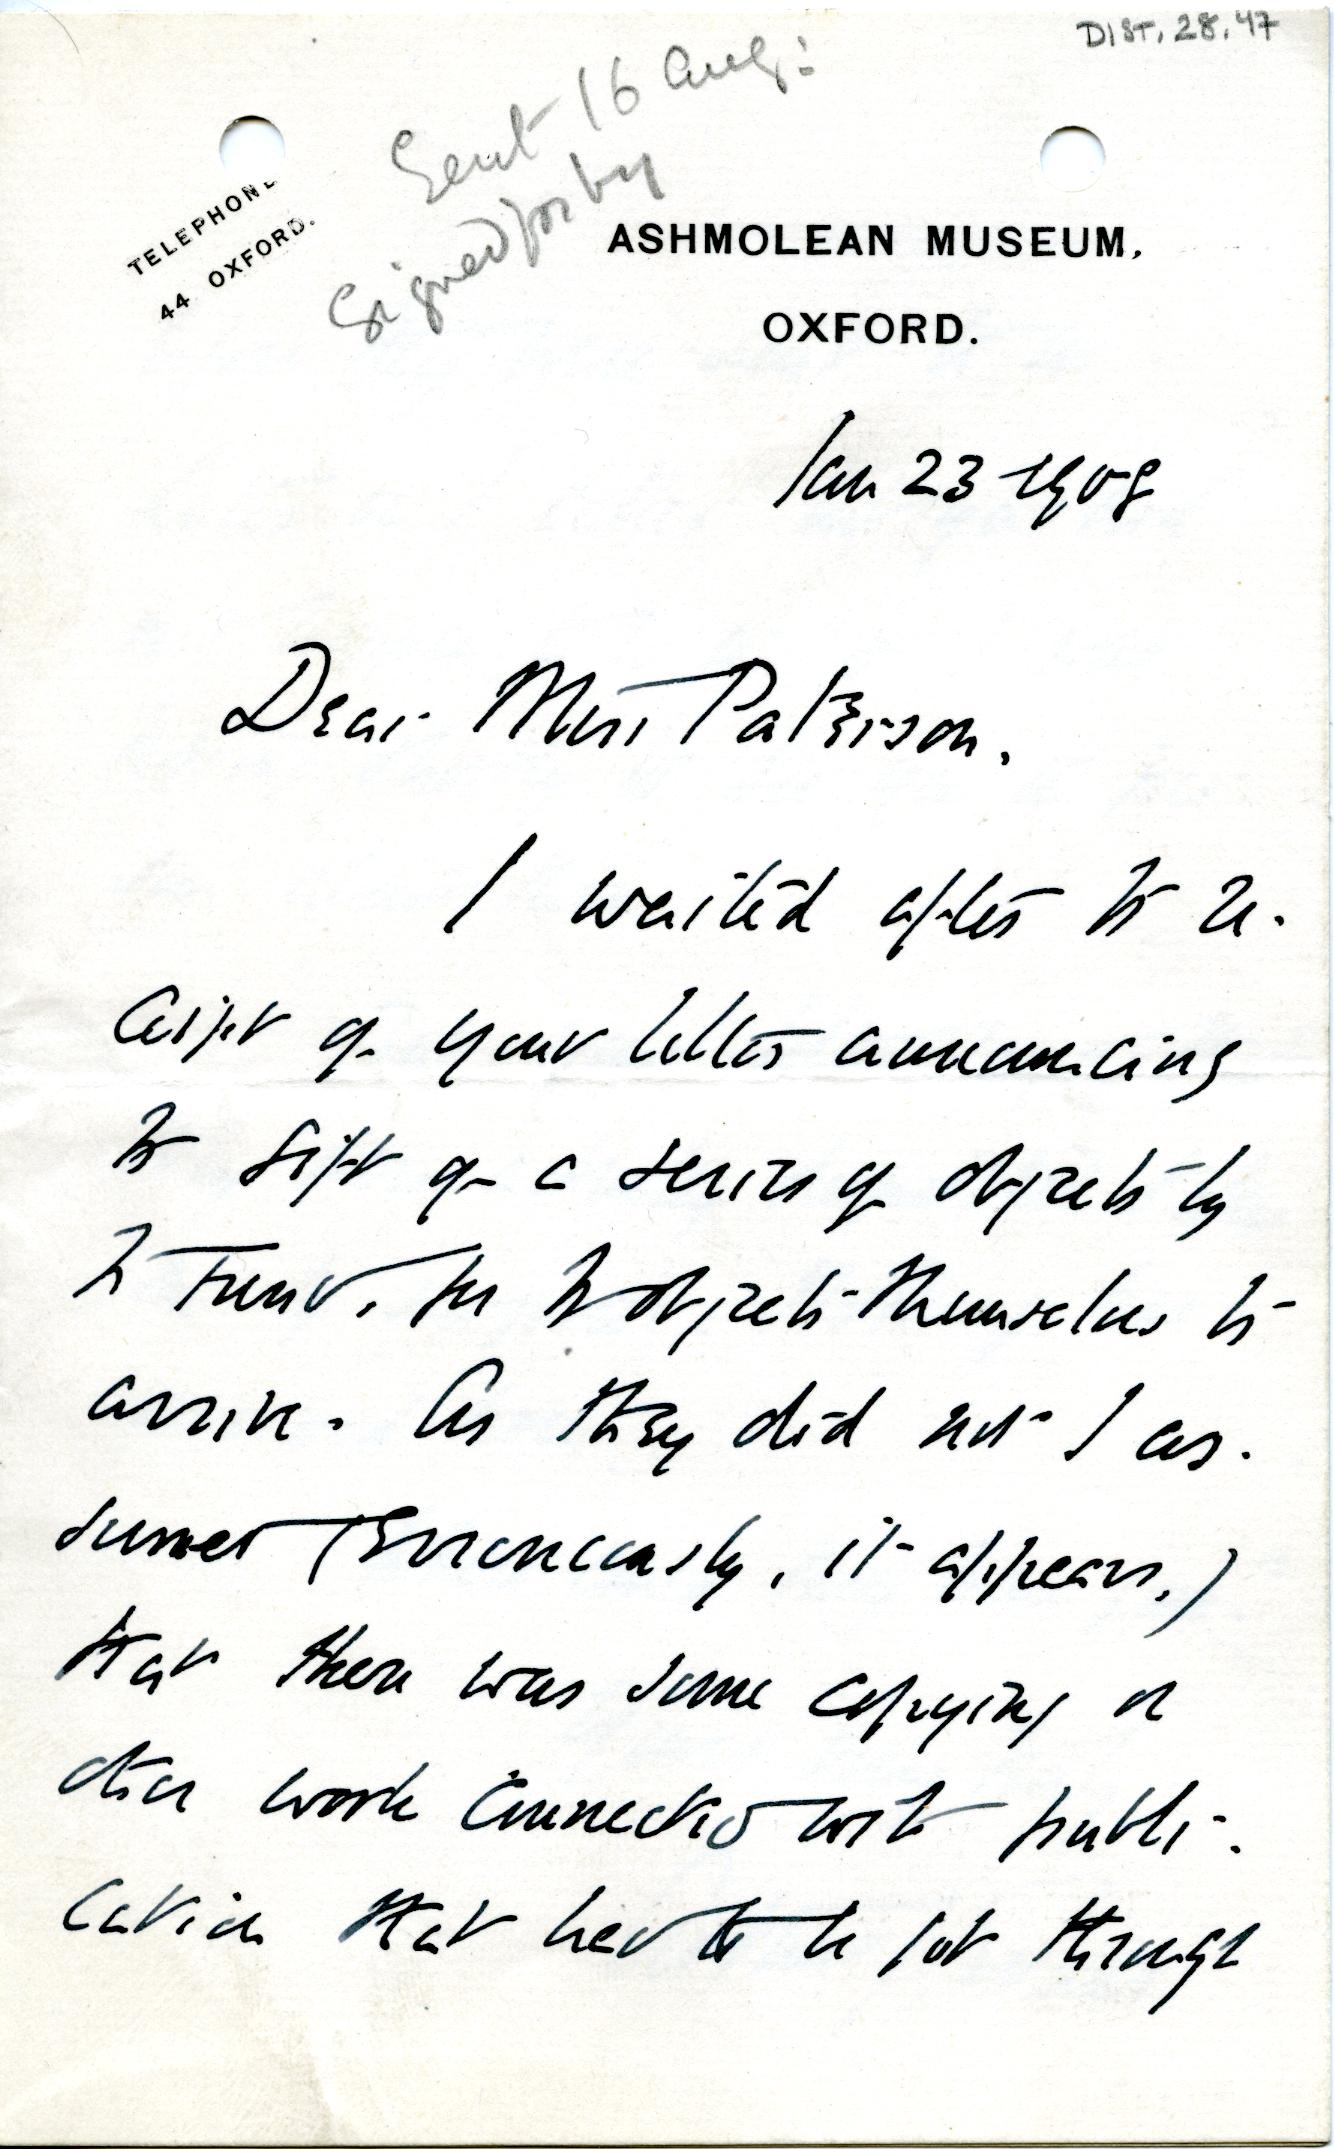 DIST. 28.47
Sent 16 Aug:
Signed for by
TELEPHONE
44 OXFORD.
ASHMOLEAN MUSEUM,
OXFORD.
Jan 23 1908
Dear Miss Paterson,
I waited after the re-
ceipt of your letter announcing
the gift of a series of objects by
the Fund, for the objects themselves to
arrive. As they did not I as-
sumed (erroneously, it appears,)
that there was some copying or
other work connected with publi-
cation that had to be got through